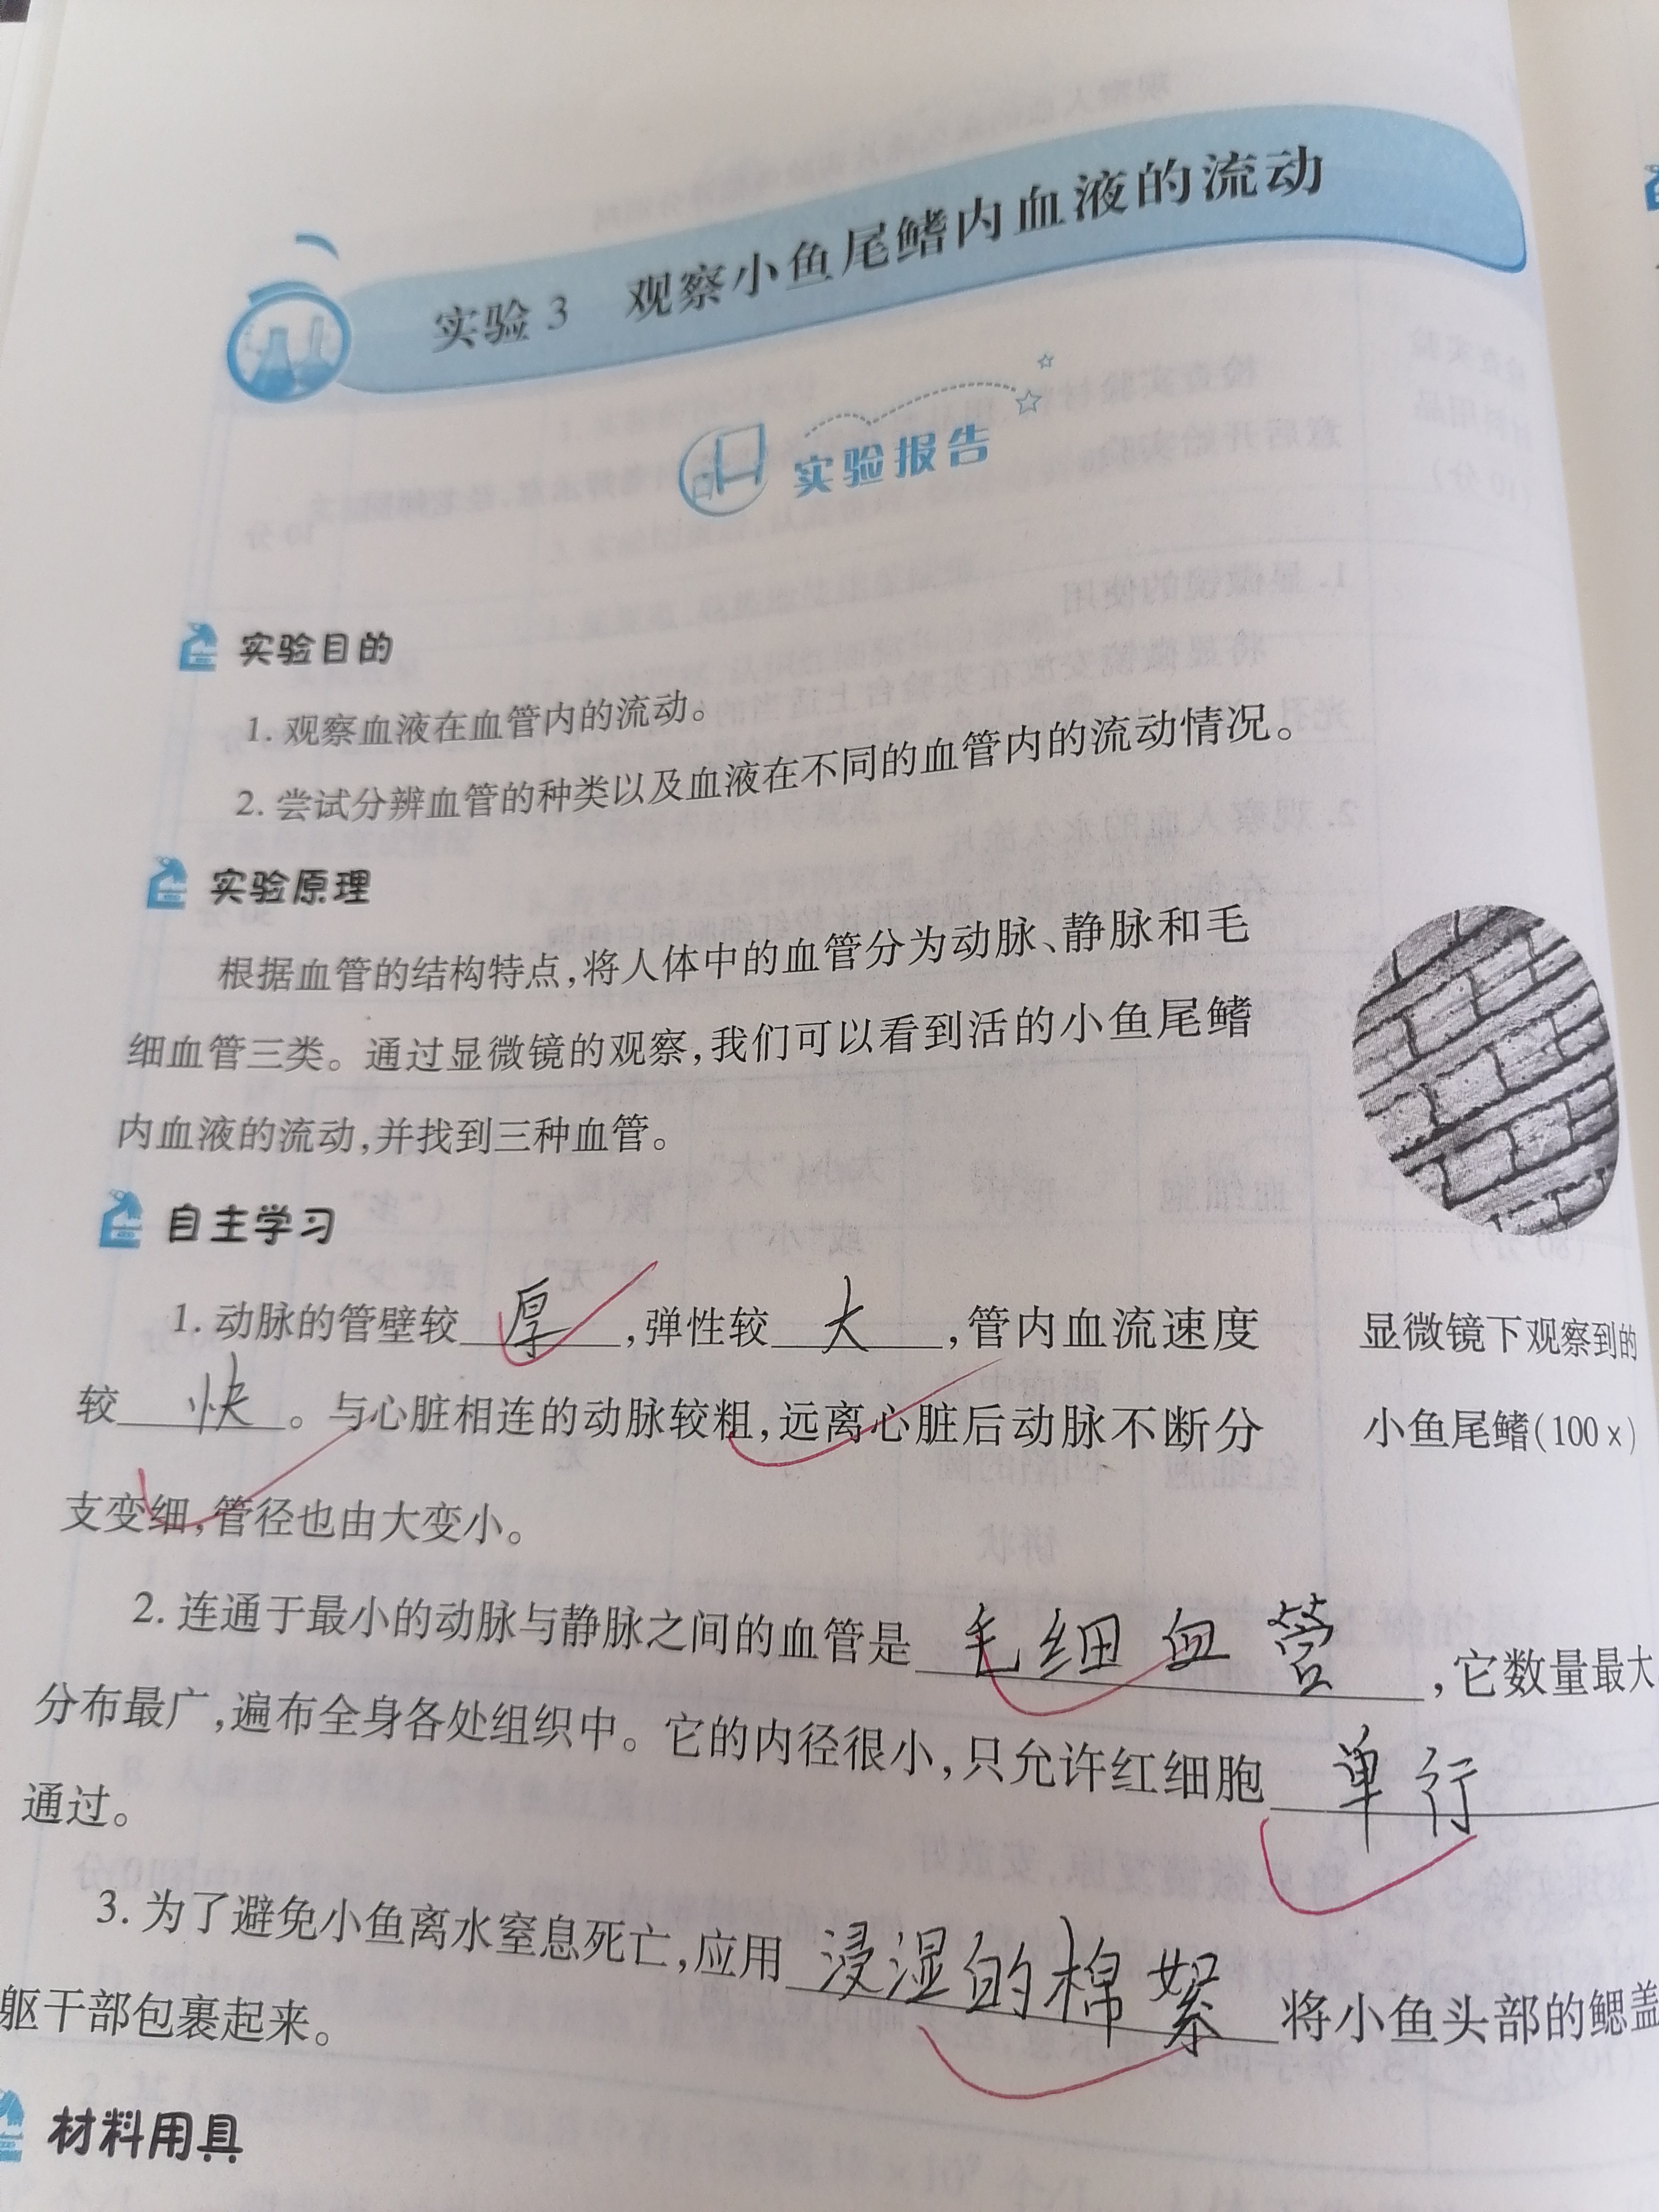 实验3 观察小鱼尾鳍内血液的流动
实验报告
实验目的
1. 观察血液在血管内的流动。
2. 尝试分辨血管的种类以及血液在不同的血管内的流动情况。
实验原理
根据血管的结构特点,将人体中的血管分为动脉、静脉和毛
细血管三类。通过显微镜的观察,我们可以看到活的小鱼尾鳍
内血液的流动,并找到三种血管。
自主学习
1. 动脉的管壁较 厚 ,弹性较 大 ,管内血流速度
较 快 。与心脏相连的动脉较粗,远离心脏后动脉不断分
支变细,管径也由大变小。
显微镜下观察到的
小鱼尾鳍(100×)
2. 连通于最小的动脉与静脉之间的血管是 毛细血管 ,它数量最大
分布最广,遍布全身各处组织中。它的内径很小,只允许红细胞 单行
通过。
3. 为了避免小鱼离水窒息死亡,应用 浸湿的棉絮 将小鱼头部的鳃盖
躯干部包裹起来。
材料用具